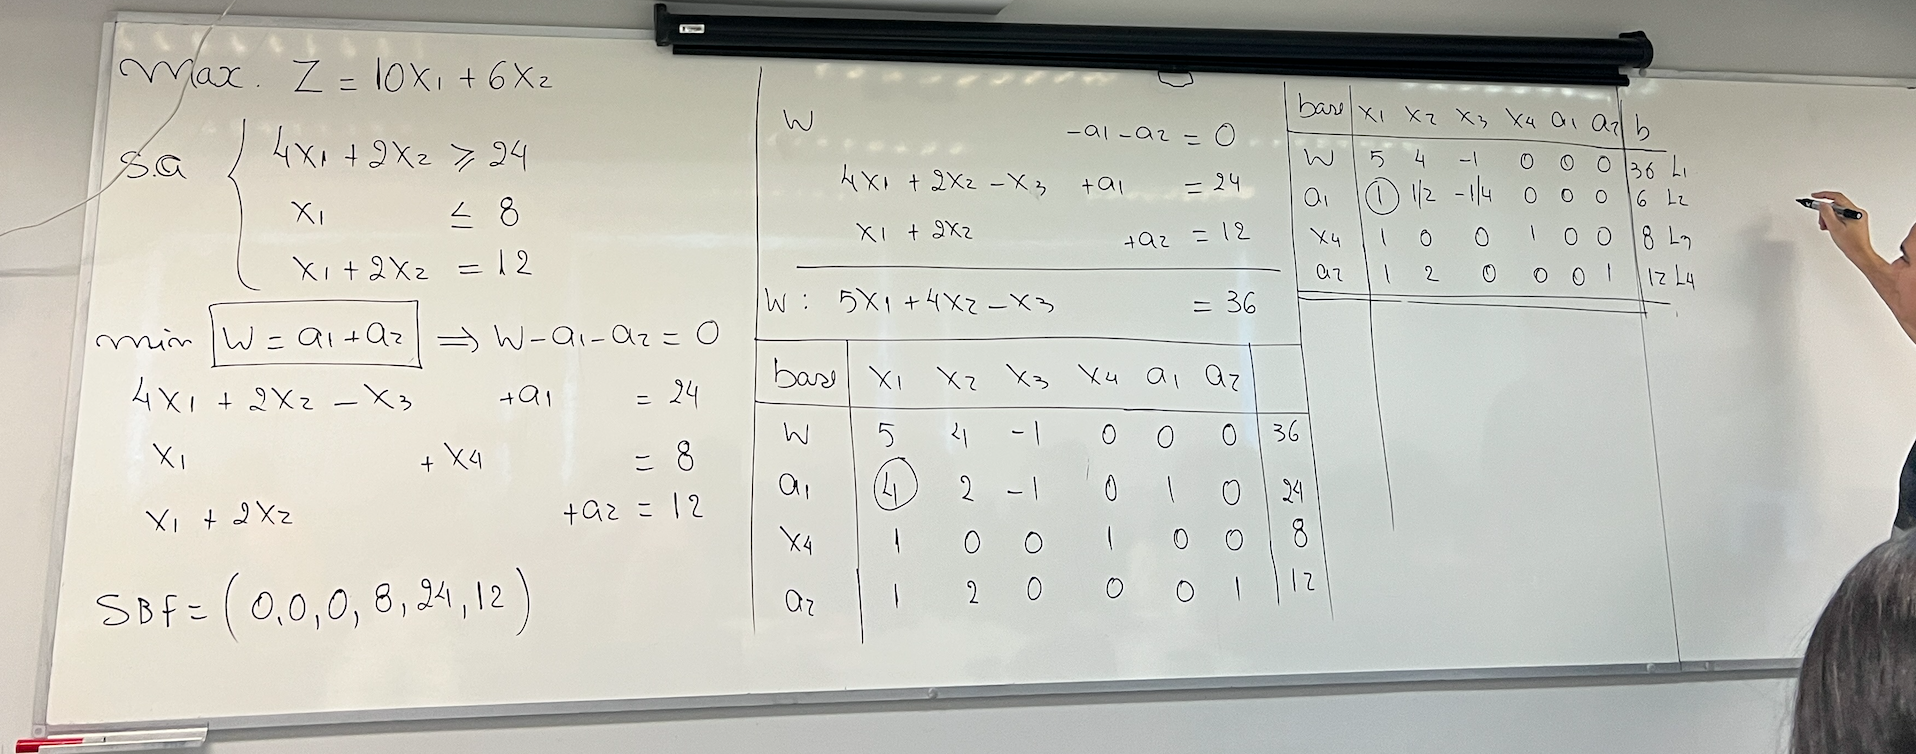 Max. Z = 10x1 + 6x2
S.a
4x1 + 2x2 ⩾ 24
x1 ≤ 8
x1 + 2x2 = 12
min W = a1 + a2 ⇒ W - a1 - a2 = 0
4x1 + 2x2 - x3 + a1 = 24
x1 + x4 = 8
x1 + 2x2 + a2 = 12
SBf = (0,0,0,8,24,12)
W - a1 - a2 = 0
4x1 + 2x2 - x3 + a1 = 24
x1 + 2x2 + a2 = 12
W: 5x1 + 4x2 - x3 = 36
base x1 x2 x3 x4 a1 a2
W 5 4 -1 0 0 0 36
a1 4 2 -1 0 1 0 24
x4 1 0 0 1 0 0 8
a2 1 2 0 0 0 1 12
base x1 x2 x3 x4 a1 a2 b
W 5 4 -1 0 0 0 36 L1
a1 1 1/2 -1/4 0 0 0 6 L2
x4 1 0 0 1 0 0 8 L3
a2 1 2 0 0 0 1 12 L4